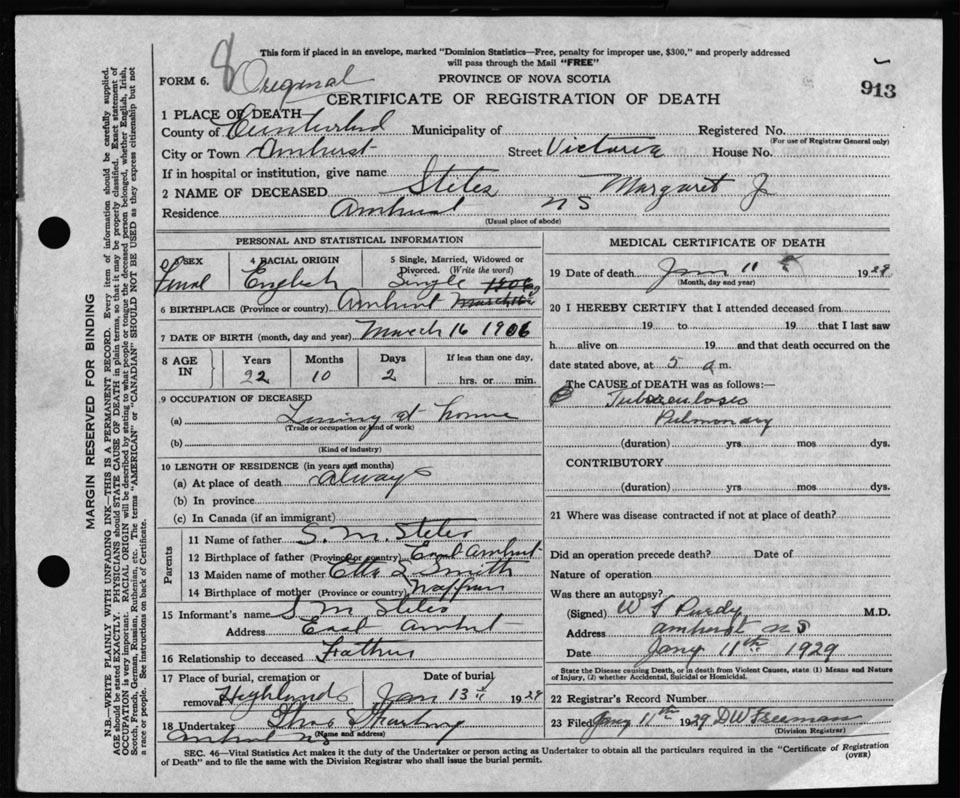 This form if placed in an envelope, marked "Dominion Statistics—Free, penalty for improper use, $300," and properly addressed
will pass through the Mail "FREE"
FORM 6. 8 Original
PROVINCE OF NOVA SCOTIA
913
CERTIFICATE OF REGISTRATION OF DEATH
1 PLACE OF DEATH—
County of Cumberland Municipality of Registered No.
(For use of Registrar General only)
City or Town Amherst Street Victoria House No.
If in hospital or institution, give name
2 NAME OF DECEASED Steles Margaret J
Residence Amherst NS
(Usual place of abode)
PERSONAL AND STATISTICAL INFORMATION
3 SEX 4 RACIAL ORIGIN 5 Single, Married, Widowed or
Divorced. (Write the word)
Femal English Single 1906
6 BIRTHPLACE (Province or country) Amherst March 16
7 DATE OF BIRTH (month, day and year) March 16 1906
8 AGE IN Years Months Days If less than one day,
22 10 2 hrs. or min.
9 OCCUPATION OF DECEASED
(a) at home
(Trade or occupation or kind of work)
(b)
(Kind of industry)
10 LENGTH OF RESIDENCE (in years and months)
(a) At place of death always
(b) In province
(c) In Canada (if an immigrant)
Parents
11 Name of father S. M. Steles
12 Birthplace of father (Province or country) East Amherst
13 Maiden name of mother Etta Smith
14 Birthplace of mother (Province or country)
15 Informant's name S M Steles
Address East Amherst
16 Relationship to deceased Father
17 Place of burial, cremation or Date of burial
removal Highland Jan 13 1929
18 Undertaker
(Name and address)
Amherst NS
MEDICAL CERTIFICATE OF DEATH
19 Date of death Jan 11 1929
(Month, day and year)
20 I HEREBY CERTIFY that I attended deceased from
19 to 19 that I last saw
h alive on 19 and that death occurred on the
date stated above, at 5 a m.
The CAUSE OF DEATH was as follows:—
Tuberculosis
Pulmonary
(duration) yrs. mos dys.
CONTRIBUTORY
(duration) yrs. mos dys.
21 Where was disease contracted if not at place of death?
Did an operation precede death? Date of
Nature of operation
Was there an autopsy?
(Signed) W T Purdy M.D.
Address Amherst NS
Date Jany 11th 1929
State the Disease causing Death, or in death from Violent Causes, state (1) Means and Nature
of Injury, (2) whether Accidental, Suicidal or Homicidal.
22 Registrar's Record Number
23 Filed Jany 11th 1929 D W Freeman
(Division Registrar)
SEC. 46—Vital Statistics Act makes it the duty of the Undertaker or person acting as Undertaker to obtain all the particulars required in the "Certificate of Registration
of Death" and to file the same with the Division Registrar who shall issue the burial permit.
(OVER)
MARGIN RESERVED FOR BINDING
N.B.—WRITE PLAINLY WITH UNFADING INK—THIS IS A PERMANENT RECORD. Every item of information should be carefully supplied.
AGE should be stated EXACTLY. PHYSICIANS should STATE CAUSE OF DEATH in plain terms, so that it may be properly classified. Exact statement of
OCCUPATION is very important. RACIAL ORIGIN will be described by stating to what people or tongue the deceased person belonged, whether English, Irish,
Scotch, French, German, Russian, Ruthenian, etc. The terms "AMERICAN" or "CANADIAN" SHOULD NOT BE USED as they express citizenship but not
a race or people. See instructions on back of Certificate.